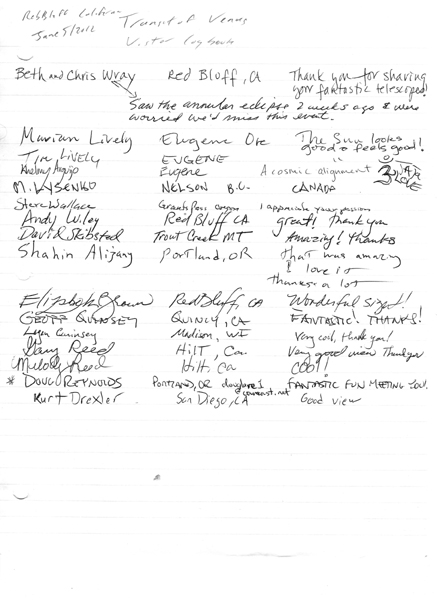 Red Bluff California Transit of Venus
June 5/2012 Visitor Logbook
Beth and Chris Wray Red Bluff, CA Thank you for sharing
your fantastic telescopes!
Saw the annular eclipse 2 weeks ago & were
worried we'd miss this event.
Marian Lively Eugene Ore The Sun looks
good & feels good!
Tim Lively EUGENE "
Eugene A cosmic alignment
M. LYSENKO NELSON B.C. CANADA
Steve Wallace Grants Pass Oregon I appreciate your passion
Andy Wiley Red Bluff CA great! thank you
David Skibsted Trout Creek MT Amazing! Thanks
Shahin Alijany Portland, OR that was amazing
I love it
thanks a lot
Elizabeth Brown Red Bluff, CA Wonderful sight!
GEOFF QUINSEY QUINCY, CA FANTASTIC! THANKS!
Quinsey Madison, WI Very cool, thank you!
Gary Reed Hilt, Ca. Very good Thank you
Melody Reed Hilt, Ca COOL!
* DOUG REYNOLDS PORTLAND, OR FANTASTIC FUN MEETING YOU.
comcast.net
Kurt Drexler San Diego, CA Good view